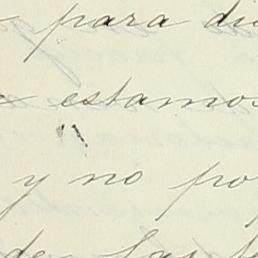 para
estamos
y no
de las